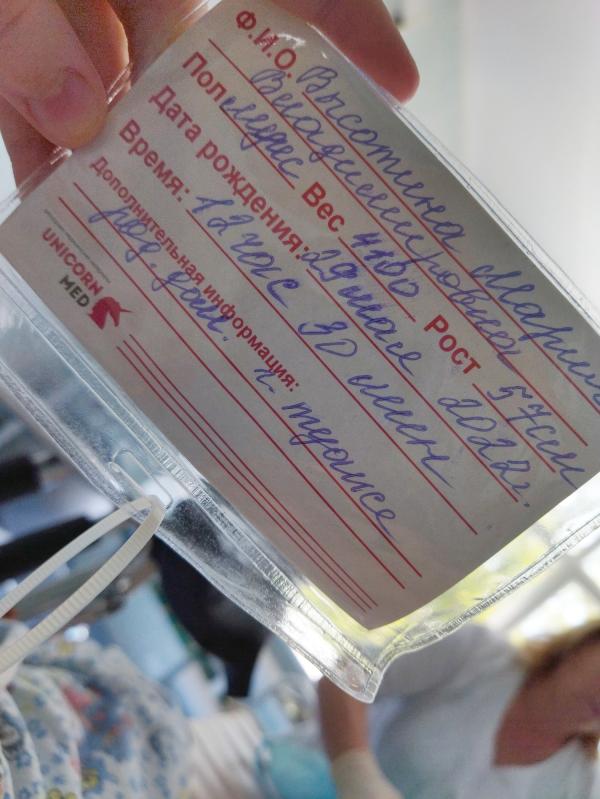 Ф.И.О. Высотина Марина
Владимировна
Пол Вес 4100 Рост 57см
Дата рождения: 29 мая 2022г.
Время: 12 час 30 мин
Дополнительная информация: г. Туапсе
род. дом.
UNICORN
MED